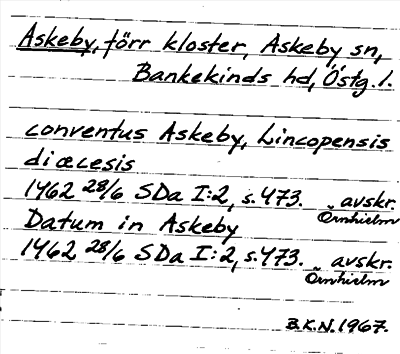 Askeby, förr kloster, Askeby sn,
Bankekinds hd, Östg. l.
conventus Askeby, Lincopensis
diœcesis
1462 28/6 SDa I:2, s. 473. avskr.
Örnhielm
Datum in Askeby
1462 28/6 SDa I:2, s. 473. avskr.
Örnhielm
B.K.N. 1967.